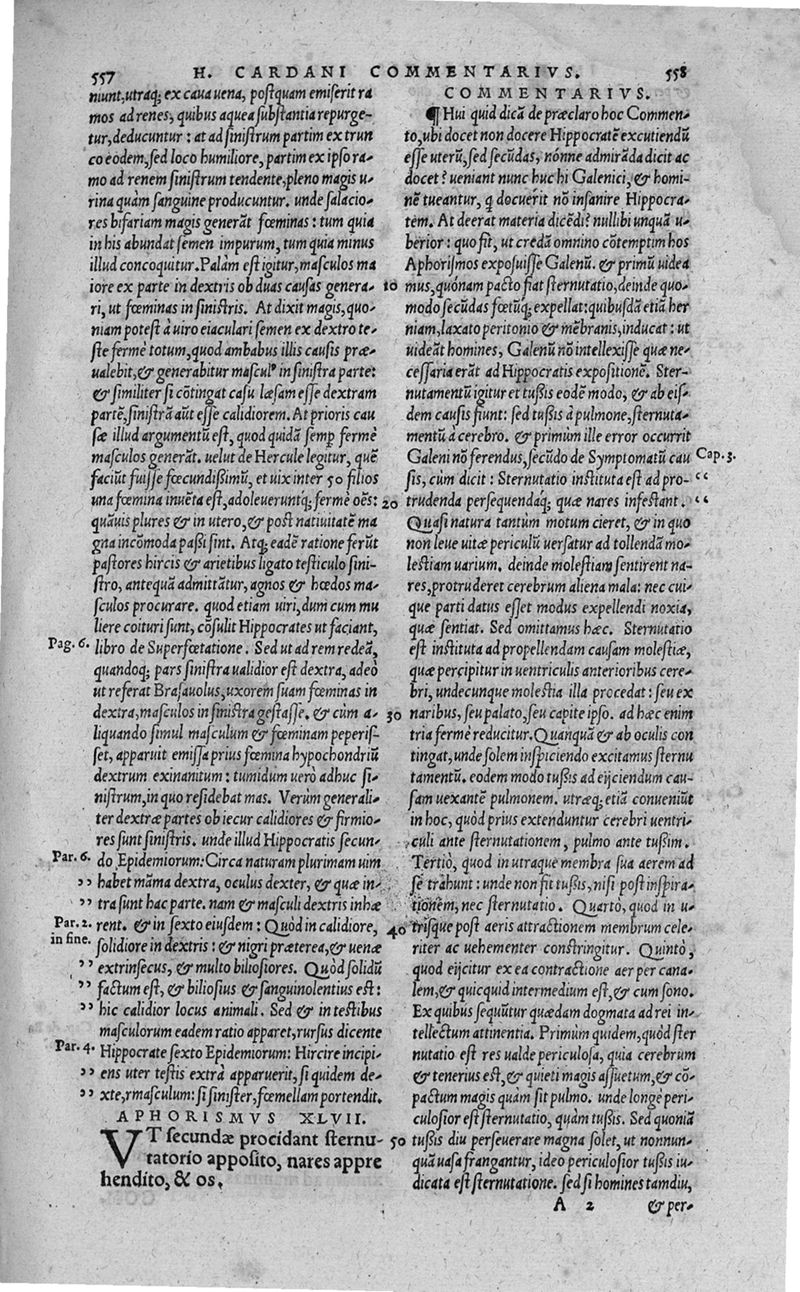 557 H. CARDANI COMMENTARIVS. 558
niunt, utraq; ex caua uena, postquam emiserit ra
mos ad renes, quibus aquea substantia repurge-
tur, deducuntur: at ad sinistrum partim ex trun
co eodem, sed loco humiliore, partim ex ipso ra-
mo ad renem sinistrum tendente, pleno magis u-
rina quàm sanguine producuntur. unde salacio-
res bifariam magis generāt fœminas: tum quia
in his abundat semen impurum, tum quia minus
illud concoquitur. Palàm est igitur, masculos ma
iore ex parte in dextris ob duas causas genera- 10
ri, ut fœminas in sinistris. At dixit magis, quo-
niam potest à uiro eiaculari semen ex dextro te-
ste fermè totum, quod ambabus illis causis præ-
ualebit, & generabitur masculꝰ in sinistra parte:
& similiter si cōtingat casu læsam esse dextram
partē, sinistrā aūt esse calidiorem. At prioris cau
sæ illud argumentū est, quod quidā semꝑ fermè
masculos generāt. uelut de Hercule legitur, quē
faciūt fuisse fœcundissimū, et uix inter 50 filios
una fœmina inuēta est, adoleueruntq; fermè oēs: 20
quāuis plures & in utero, & post natiuitatē ma
gna incōmoda passi sint. Atq; eadē ratione ferūt
pastores hircis & arietibus ligato testiculo sini-
stro, antequā admittātur, agnos & hœdos ma-
sculos procurare. quod etiam uiri, dum cum mu
liere coituri sunt, cōsulit Hippocrates ut faciant,
Pag. 6. libro de Superfœtatione. Sed ut ad rem redeā,
quandoq; pars sinistra ualidior est dextra, adeò
ut referat Brasauolus, uxorem suam fœminas in
dextra, masculos in sinistra gestasse. & cùm a- 30
liquando simul masculum & fœminam peperis-
set, apparuit emissa prius fœmina hypochondriū
dextrum exinanitum: tumidum uerò adhuc si-
nistrum, in quo residebat mas. Verùm generali-
ter dextræ partes ob iecur calidiores & firmio-
res sunt sinistris. unde illud Hippocratis secun-
Par. 6. do Epidemiorum: Circa naturam plurimam uim
” habet māma dextra, oculus dexter, & quæ in-
” tra sunt hac parte. nam & masculi dextris inhæ
Par. 2. rent. & in sexto eiusdem: Quòd in calidiore, 40
in fine. solidiore in dextris: & nigri præterea, & uenæ
” extrinsecus, & multo biliosiores. Quòd solidū
” factum est, & biliosius & sanguinolentius est:
” hic calidior locus animali. Sed & in testibus
masculorum eadem ratio apparet, rursus dicente
Par. 4. Hippocrate sexto Epidemiorum: Hircire incipi-
” ens uter testis extrà apparuerit, si quidem de-
” xter, masculum: si sinister, fœmellam portendit.
APHORISMVS XLVII.
VT secundæ procidant sternu- 50
tatorio apposito, nares appre
hendito, & os.
COMMENTARIVS.
¶ Hui quid dicā de præclaro hoc Commen-
to, ubi docet non docere Hippocratē excutiendū
esse uterū, sed secūdas, nónne admirāda dicit ac
docet? ueniant nunc huc hi Galenici, & homi-
nē tueantur, q̨ docuerit nō insanire Hippocra-
tem. At deerat materia dicēdi? nullibi unquā u-
berior: quo fit, ut credā omnino cōtemptim hos
Aphorismos exposuisse Galenū. & primū uidea
mus, quónam pacto fiat sternutatio, deinde quo-
modo secūdas fœtūq; expellat: quibusdā etiā her
niam, laxato peritonio & mēbranis, inducat: ut
uideāt homines, Galenū nō intellexisse quæ ne-
cessaria erāt ad Hippocratis expositionē. Ster-
nutamentū igitur et tussis eodē modo, & ab eis-
dem causis fiunt: sed tussis à pulmone, sternuta-
mentū à cerebro. & primùm ille error occurrit
Galeni nō ferendus, secūdo de Symptomatū cau Cap. 3.
sis, cùm dicit: Sternutatio instituta est ad pro- “
trudenda persequendaq; quæ nares infestant. “
Quasi natura tantum motum cieret, & in quo
non leue uitæ periculū uersatur ad tollendā mo-
lestiam narium. deinde molestiam sentirent na-
res, protruderet cerebrum aliena mala: nec cui-
que parti datus esset modus expellendi noxia,
quæ sentiat. Sed omittamus hæc. Sternutatio
est instituta ad propellendam causam molestiæ,
quæ percipitur in ventriculis anterioribus cere-
bri, undecunque molestia illa procedat: seu ex
naribus, seu palato, seu capite ipso. ad hæc enim
tria fermè reducitur. Quanquā & ab oculis con
tingat, unde solem inspiciendo excitamus sternu
tamentū. eodem modo tussis ad eijciendum cau-
sam uexantē pulmonem. utræq; etiā conueniūt
in hoc, quòd prius extenduntur cerebri uentri-
culi ante sternutationem, pulmo ante tussim.
Tertiò, quod in utraque membra sua aerem ad
sē trahunt: unde non fit tussis, nisi post inspira-
tionēm, nec sternutatio. Quartò, quod in u-
trisque post aeris attractionem membrum cele-
riter ac uehementer constringitur. Quintò,
quod eijcitur ex ea contractione aer per cana-
lem, & quicquid intermedium est, & cum sono.
Ex quibus sequūtur quædam dogmata ad rei in-
tellectum attinentia. Primùm quidem, quòd ster
nutatio est res ualde periculosa, quia cerebrum
& tenerius est, & quieti magis assuetum, & cō-
pactum magis quàm sit pulmo. unde longè peri-
culosior est sternutatio, quàm tussis. Sed quoniā
tussis diu perseuerare magna solet, ut nonnun-
quā uasa frangantur, ideo periculosior tussis iu-
dicata est sternutatione. sed si homines tamdiu,
A 2 & per-